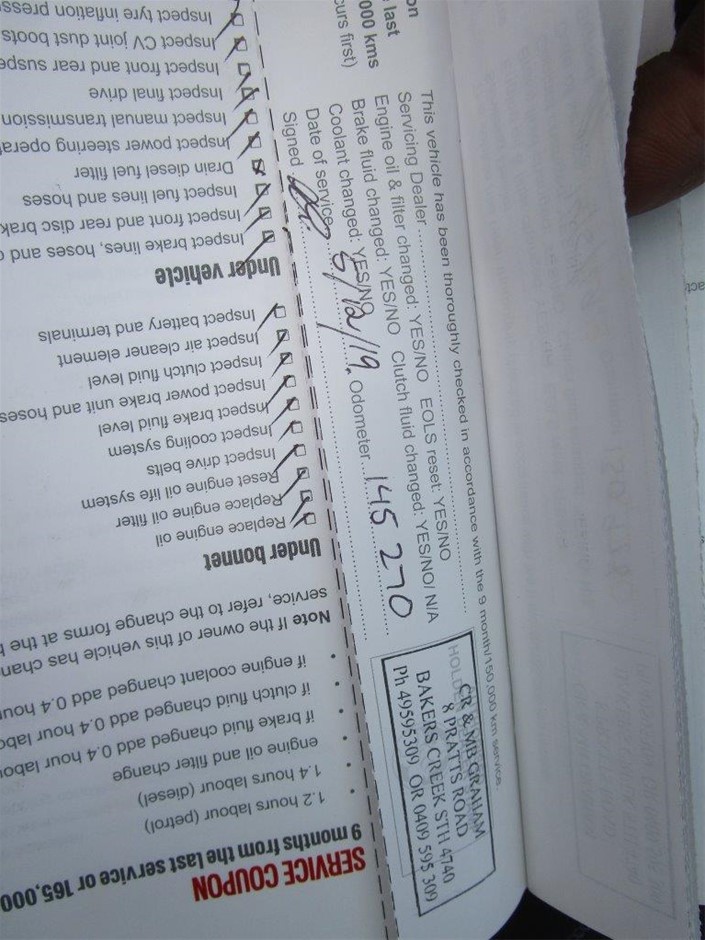 SERVICE COUPON
9 months from the last service or 165,000
1.2 hours labour (petrol)
1.4 hours labour (diesel)
engine oil and filter change
if brake fluid changed add 0.4 hour labou
if clutch fluid changed add 0.4 hour labo
if engine coolant changed add 0.4 hour
Note If the owner of this vehicle has chan
service, refer to the change forms at the b
Under bonnet
Replace engine oil
Replace engine oil filter
Reset engine oil life system
Inspect drive belts
Inspect cooling system
Inspect brake fluid level
Inspect power brake unit and hoses
Inspect clutch fluid level
Inspect air cleaner element
Inspect battery and terminals
Under vehicle
Inspect brake lines, hoses and c
Inspect front and rear disc brak
Inspect fuel lines and hoses
Drain diesel fuel filter
Inspect power steering operat
Inspect manual transmission
Inspect final drive
Inspect front and rear suspe
Inspect CV joint dust boots
Inspect tyre inflation press
on
last
000 kms
curs first)
This vehicle has been thoroughly checked in accordance with the 9 month/150,000 km service.
Servicing Dealer
Engine oil & filter changed: YES/NO EOLS reset: YES/NO
Brake fluid changed: YES/NO Clutch fluid changed: YES/NO/ N/A
Coolant changed: YES/NO
Date of service 5/12/19. Odometer 145 270
Signed
CR & MB GRAHAM
8 PRATTS ROAD
BAKERS CREEK STH 4740
Ph 49595309 OR 0409 595 309